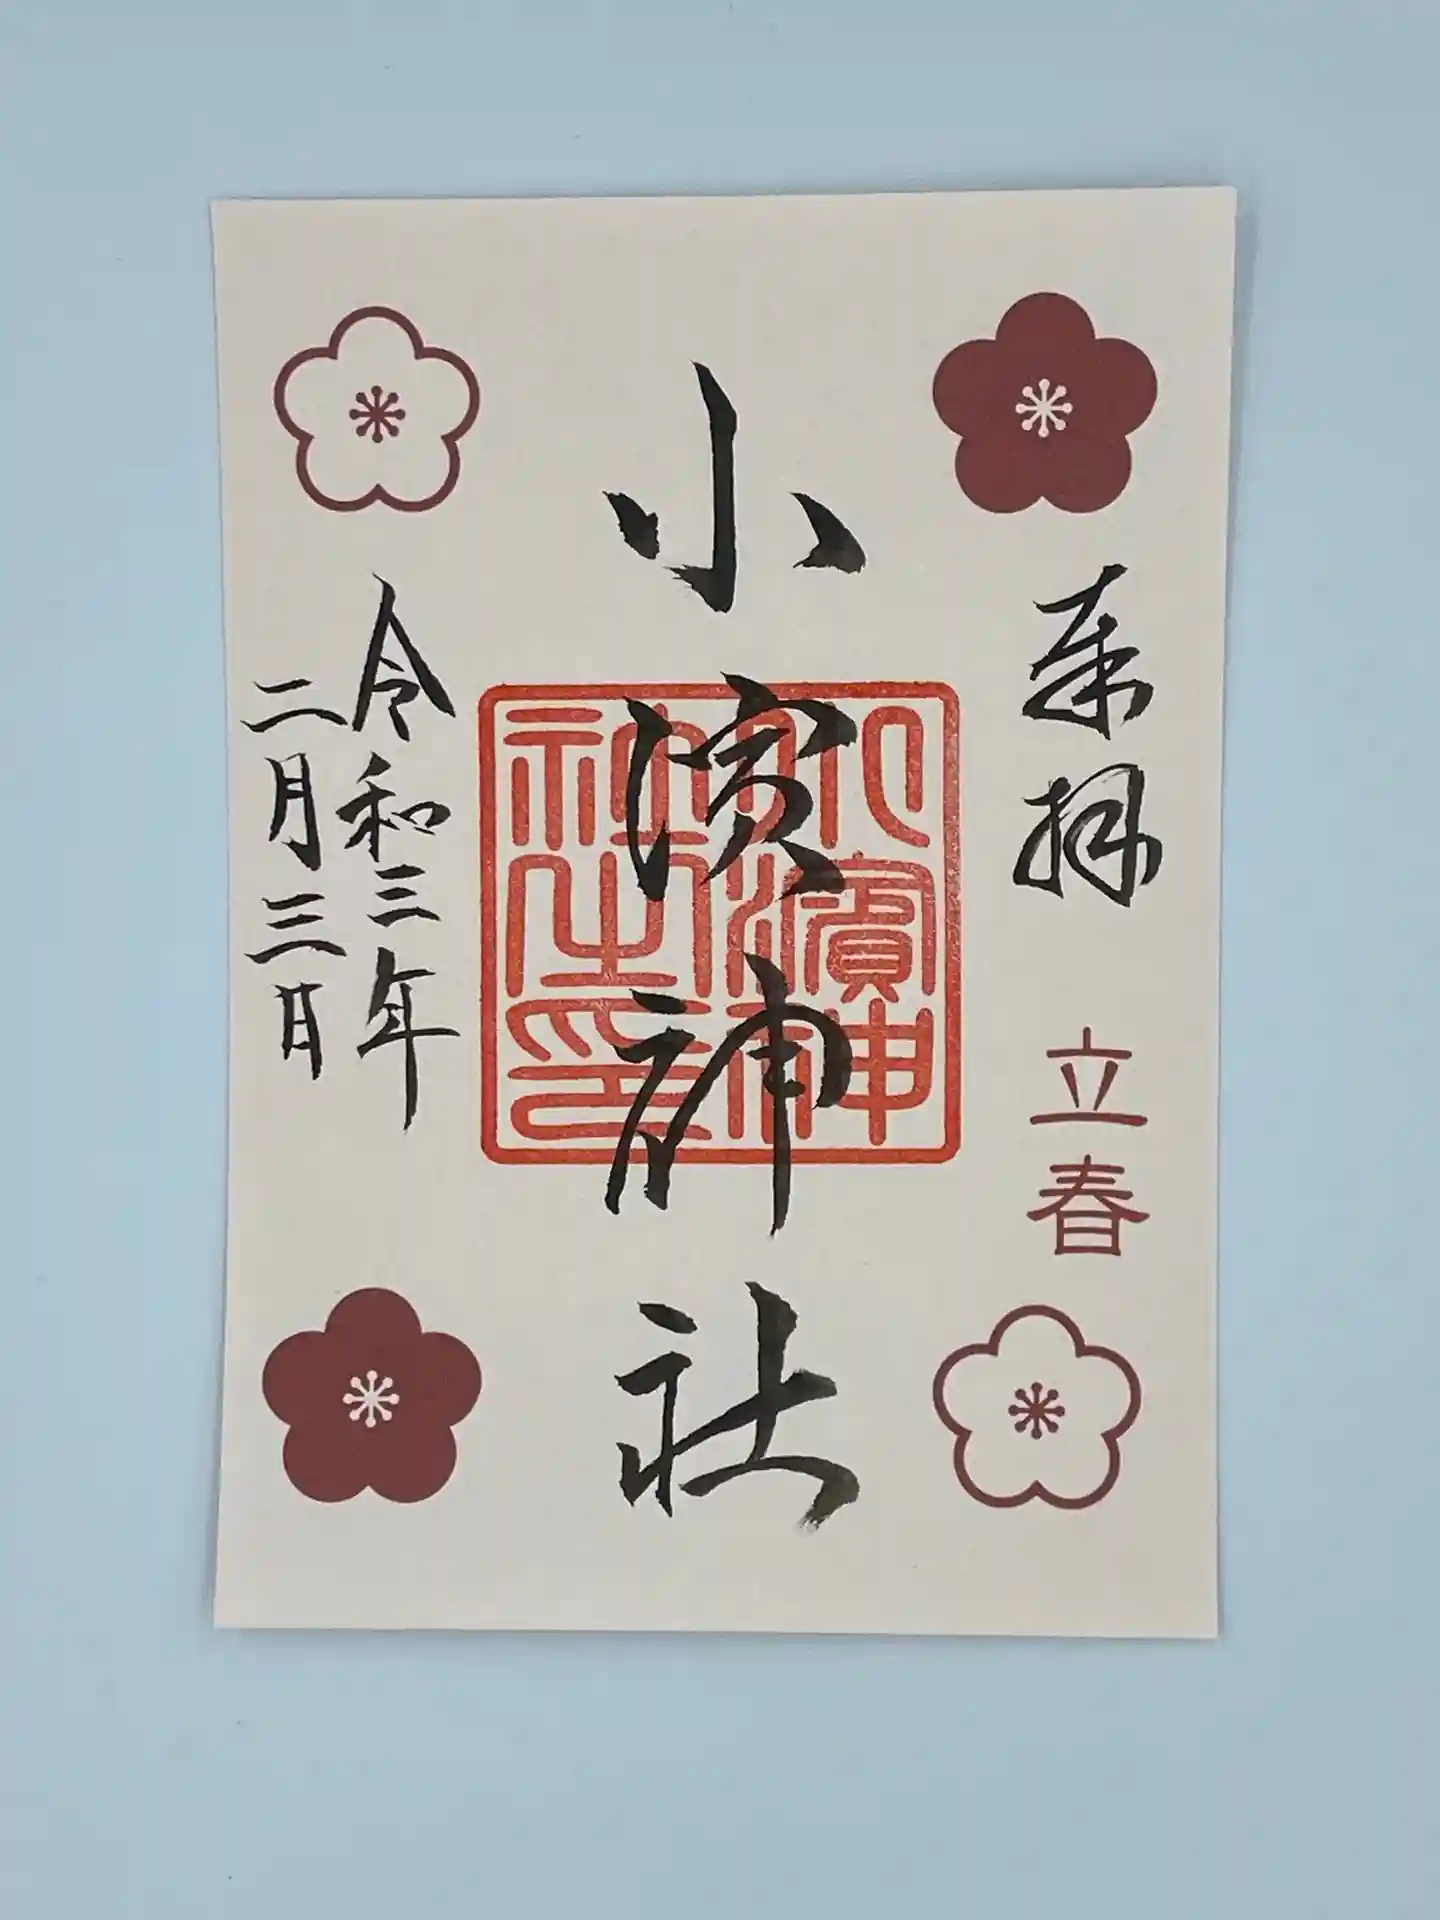 奉拝
立春
小濱神社
小濱神社之印
令和三年
二月三日